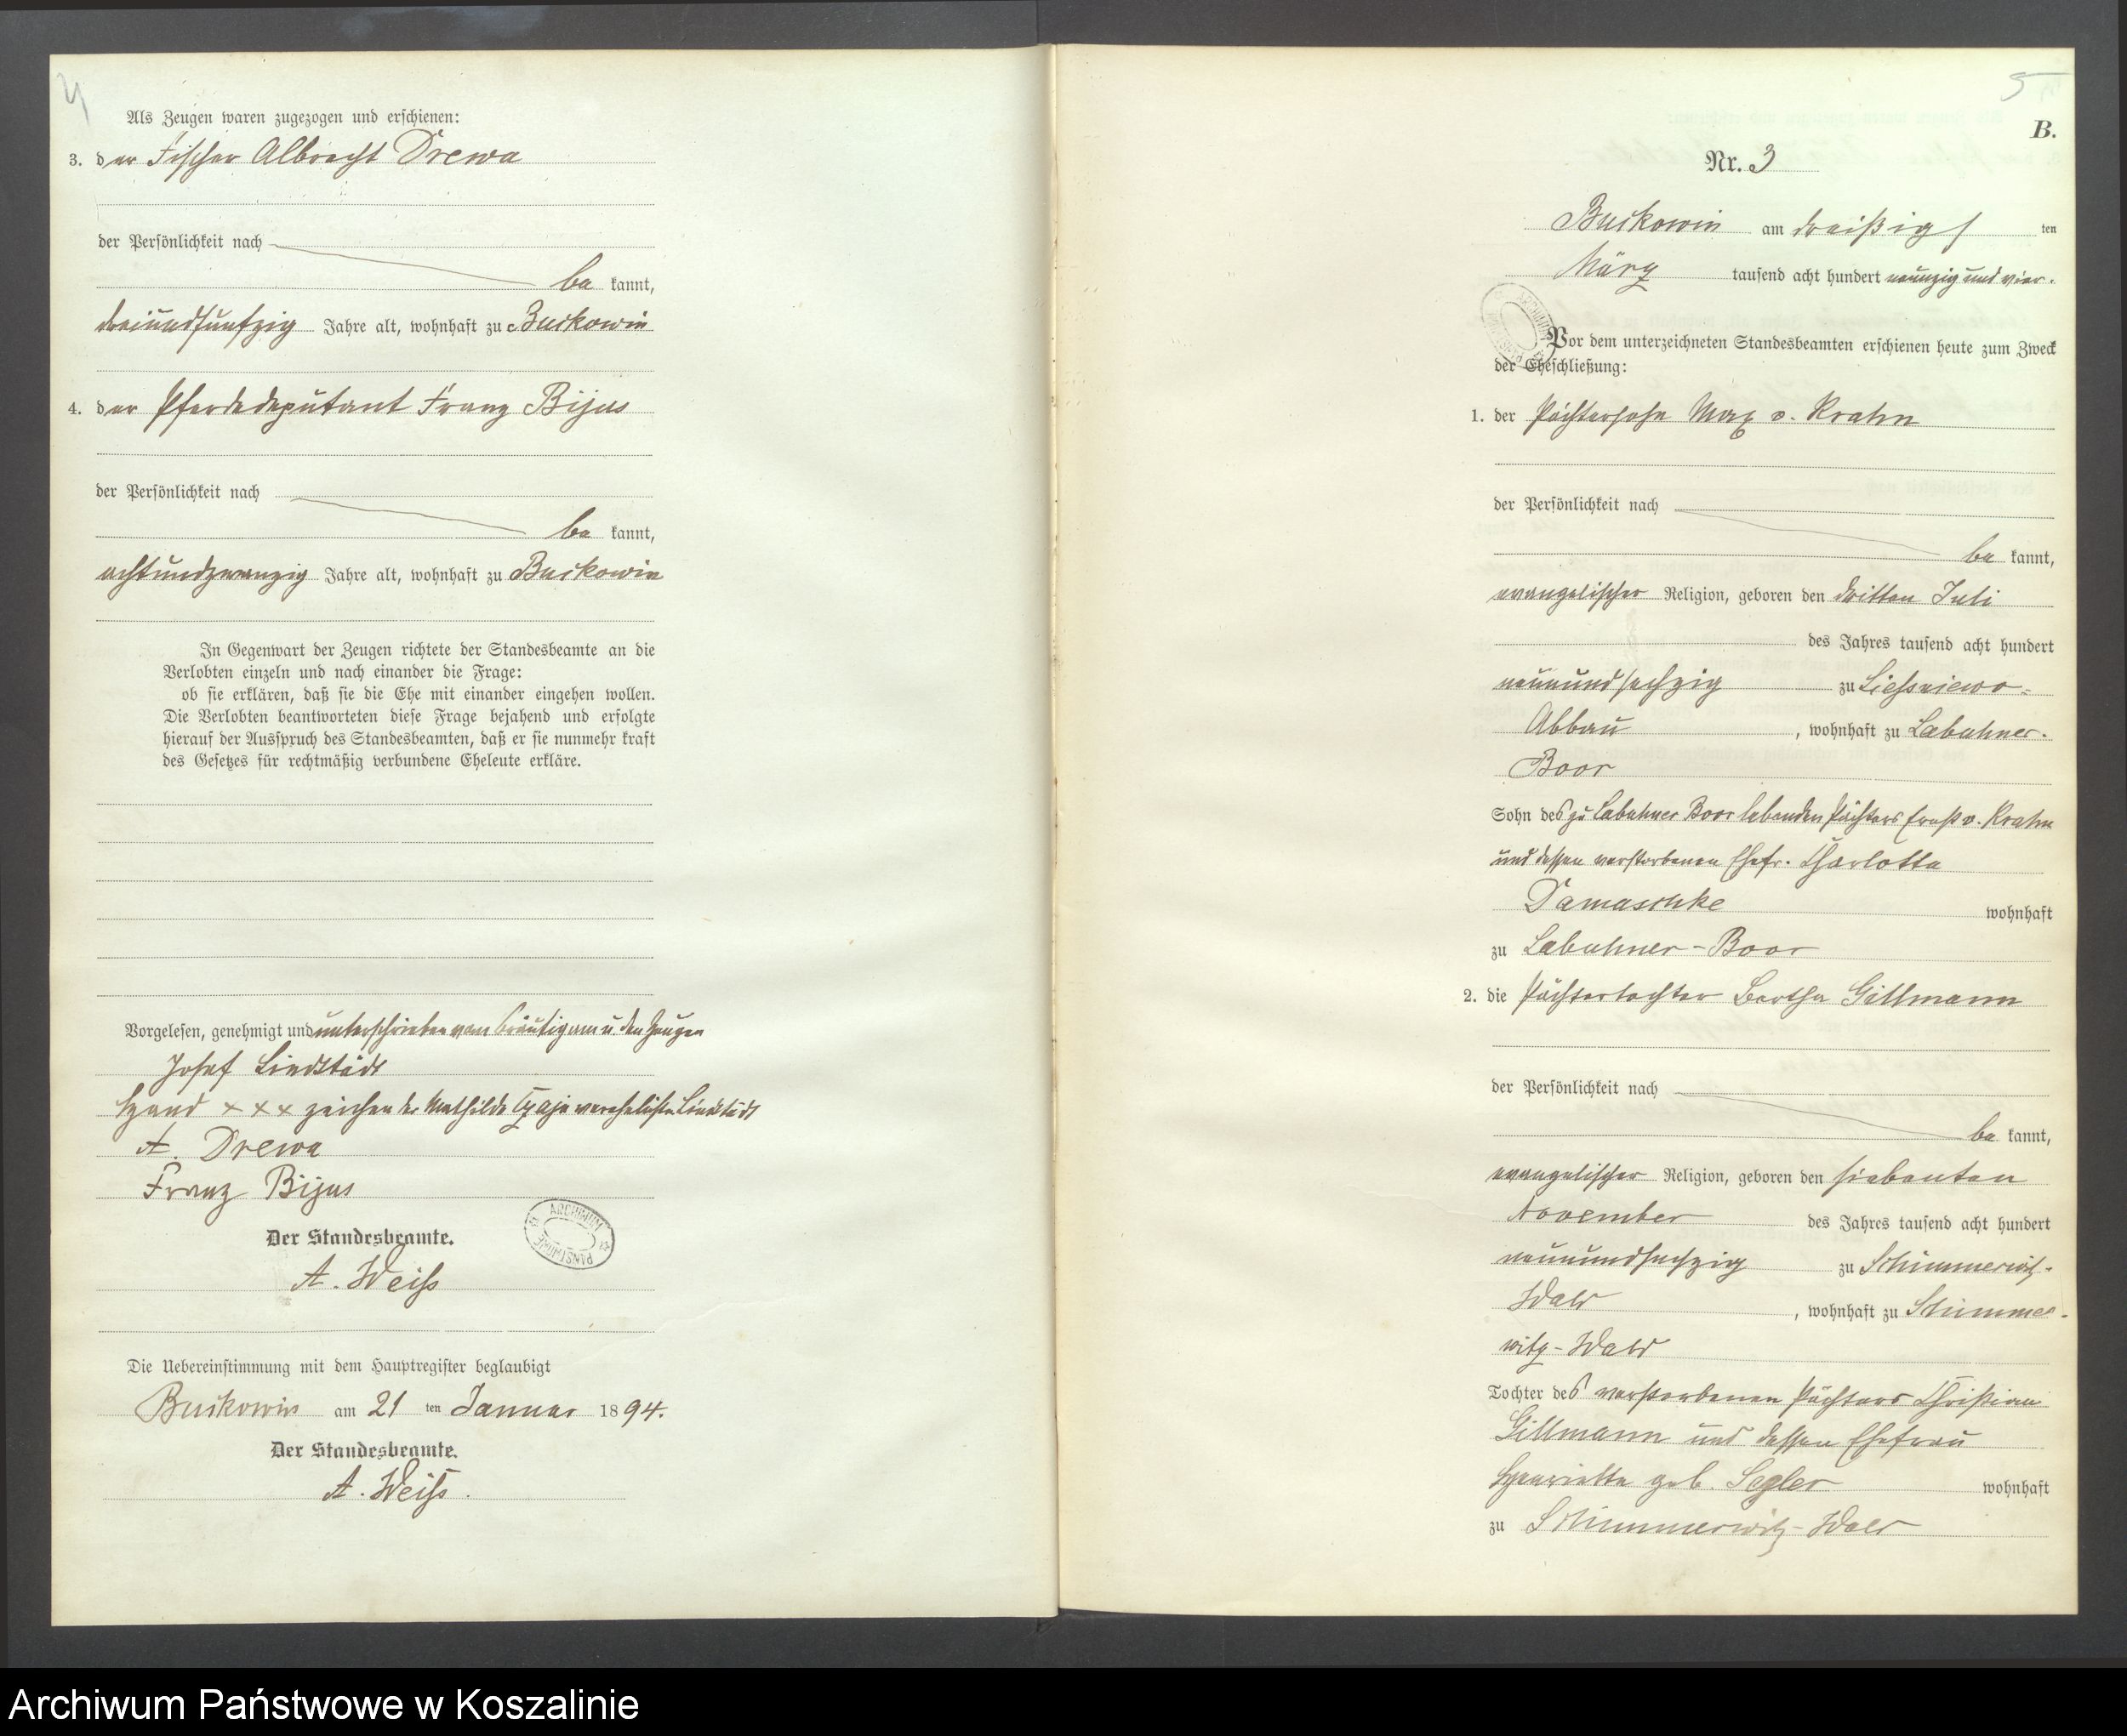 4
Als Zeugen waren zugezogen und erschienen:
3. der Fischer Albrecht Drewa
der Persönlichkeit nach
be kannt,
dreiundfünfzig Jahre alt, wohnhaft zu Buckowin
4. der Pferdedeputant Franz Bijus
der Persönlichkeit nach
be kannt,
achtundzwanzig Jahre alt, wohnhaft zu Buckowin
In Gegenwart der Zeugen richtete der Standesbeamte an die
Verlobten einzeln und nach einander die Frage:
ob sie erklären, daß sie die Ehe mit einander eingehen wollen.
Die Verlobten beantworteten diese Frage bejahend und erfolgte
hierauf der Ausspruch des Standesbeamten, daß er sie nunmehr kraft
des Gesetzes für rechtmäßig verbundene Eheleute erkläre.
Vorgelesen, genehmigt und unterschrieben vom Bräutigam u. den Zeugen
Josef Lindstädt
Hand x x x zeichen der Mathilde Czaja verehelichte Lindstädt
A. Drewa
Franz Bijus
ARCHIWUM PAŃSTWOWE
Der Standesbeamte.
A. Weiß
Die Uebereinstimmung mit dem Hauptregister beglaubigt
Buckowin am 21 ten Januar 1894.
Der Standesbeamte.
A. Weiß.
5
B.
Nr. 3
Buckowin am dreißigs ten
März tausend acht hundert neunzig und vier.
Vor dem unterzeichneten Standesbeamten erschienen heute zum Zweck
der Eheschließung:
1. der Pächtersohn Max v. Krahn
der Persönlichkeit nach
be kannt,
evangelischer Religion, geboren den dritten Juli
des Jahres tausend acht hundert
neunundsechzig zu Liessniewo-
Abbau, wohnhaft zu Labuhner-
Boor
Sohn des zu Labuhner Boor lebenden Pächters Ernst v. Krahn
und dessen verstorbenen Ehefr. Charlotte
Damaschke wohnhaft
zu Labuhner-Boor
2. die Pächtertochter Bertha Gillmann
der Persönlichkeit nach
be kannt,
evangelischer Religion, geboren den siebenten
November des Jahres tausend acht hundert
neunundsechzig zu Schimmerwitz-
Wald, wohnhaft zu Schimmer-
witz-Wald
Tochter des verstorbenen Pächters Christian
Gillmann und dessen Ehefrau
Henriette geb. Segler wohnhaft
zu Schimmerwitz-Wald
Archiwum Państwowe w Koszalinie